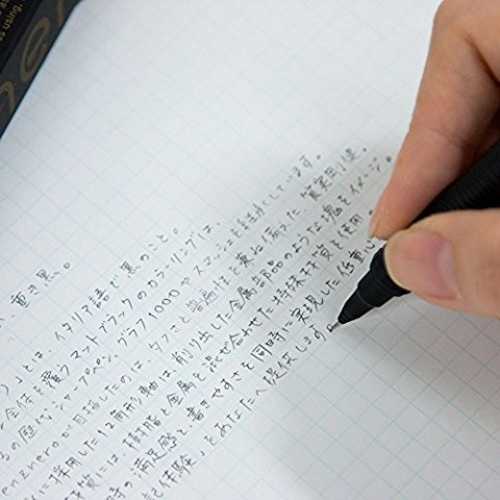 重き黒。
」とは、イタリア語で黒のこと。
全体を覆うマットブラックのカラーリングは、
シャープペン、グラフ1000やスマッシュを継承しています。
enzneroが目指したのは、タフさと普遍性を兼ね備えた、質実剛健。
に採用した12角形軸は、削り出した金属部品のような塊をイメージ。
材質には、樹脂と金属を混ぜ合わせた特殊材質を使用
時の満足感と、書きやすさを同時に実現した低重心
体験」をあなたへ提供します